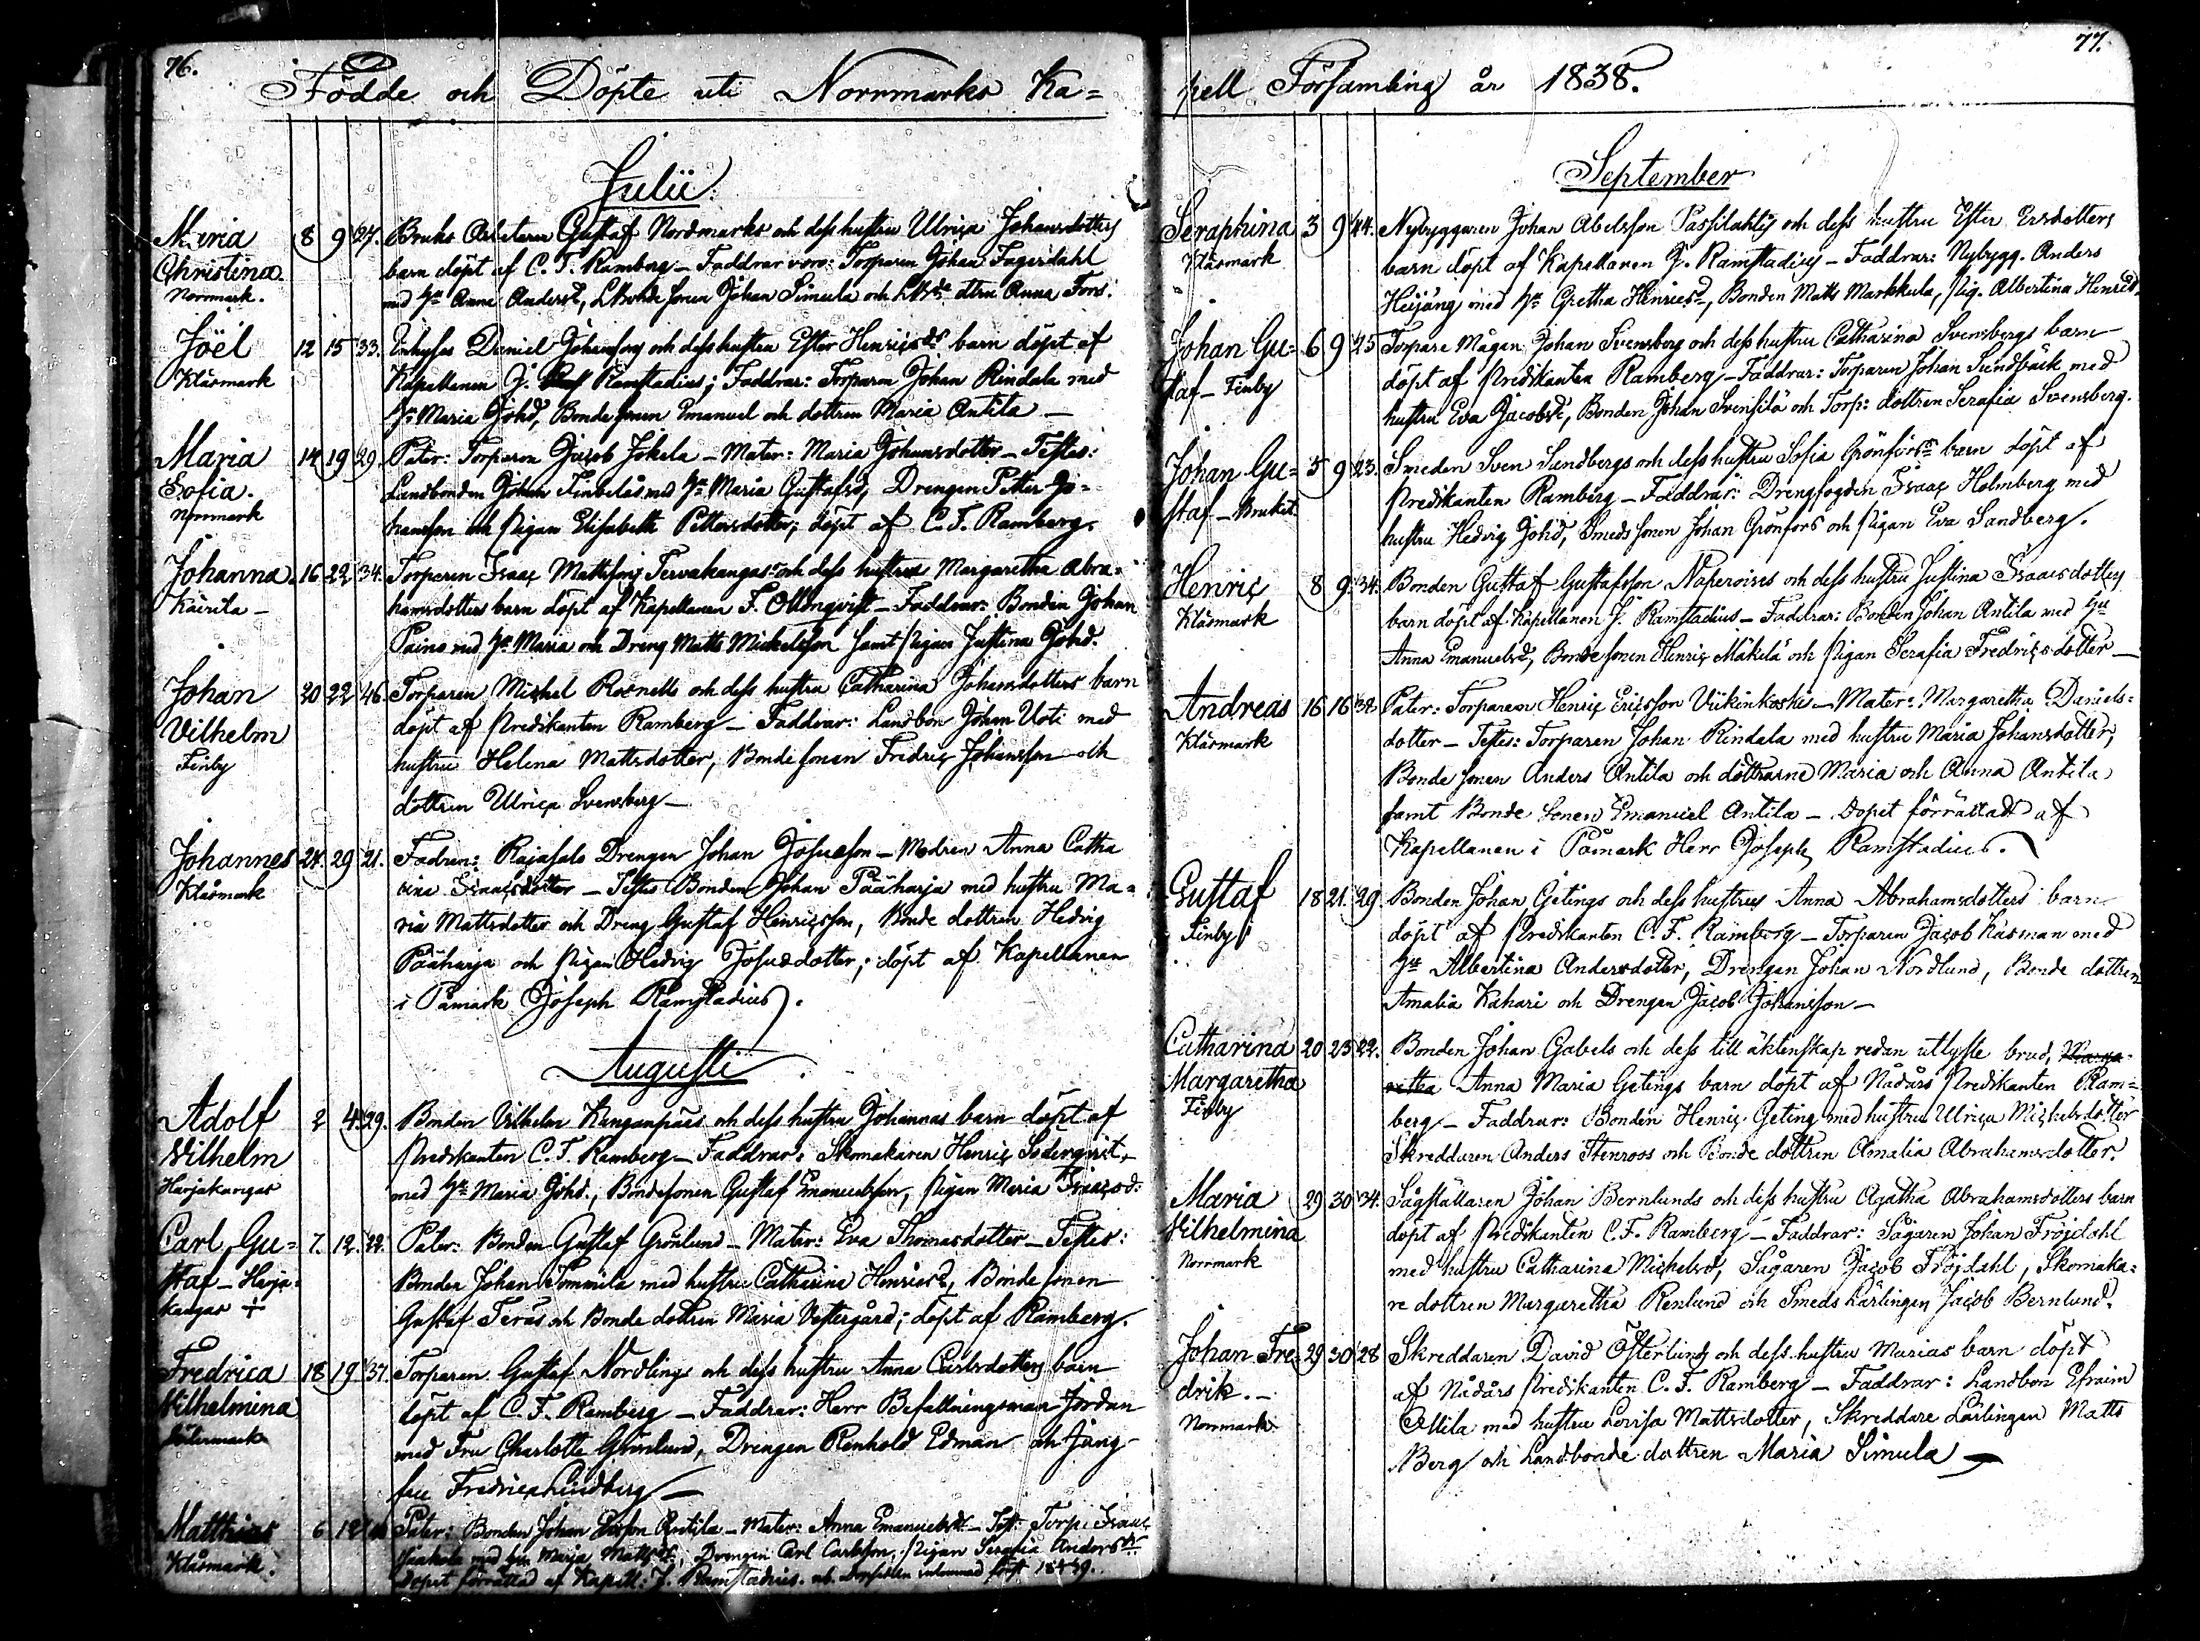 76.
Födde och Döpte uti Norrmarks Ka=
Julii.
Maria 8 9 27. Bruks Arbetaren Gustaf Nordmarks och dess hustru Ulrica Johansdotters
Christina. barn döpt af C. F. Ramberg – Faddrar voro: Torparen Johan Fagerdahl
Norrmark. med hu Anna Andersd, sonen Johan Simula och Anna Fors.
Joël 12 15 33. Inhyses Daniel Johansons och dess hustru Ester Henricsds barn döpt af
Klåsmark Kapellanen J. Ramstadius; Faddrar: Torparen Johan Rindala med
hu Maria Johd, Bonde sonen Emanuel och dottren Maria Antila –
Maria 14 19 29. Pater: Torparen Jacob Jokela – Mater: Maria Johansdotter – Testes:
Sofia. Landbonden Johan med hu Maria Gustafsd, Drengen Petter Jo=
Norrmark hansson och Pigan Elisabeth Pettersdotter; döpt af C. F. Ramberg.
Johanna. 16 22 34. Torparen Isaac Mattssons Tervakangas och dess hustrus Margaretha Abra=
hamsdotters barn döpt af Kapellanen F. – Faddrar: Bonden Johan
Paino med hu Maria och Dreng Matts Mickelsson samt Pigan Justina Johd.
Johan 20 22 46. Torparen Michel Rosnells och dess hustru Catharina Johansdotters barn
Vilhelm döpt af Predikanten Ramberg – Faddrar: Landbon Johan Uoti med
Finby hustru Helena Mattsdotter, Bonde sonen Fredric Johansson och
dottren Ulrica Svensberg –
Johannes 24. 29 21. Fadren: Drengen Johan Josuason – Modren Anna Catha
Klåsmark rina Isaacsdotter – Testes Bonden Johan Pääharja med hustru Ma=
ria Mattsdotter och Dreng Gustaf Henricsson, Bonde dottren Hedvig
Pääharja och Pigan Hedvig Josuadotter; döpt af Kapellanen
i Påmark Joseph Ramstadius.
Augusti
Adolf 2 4 29. Bonden Vilhelm Kanganpääs och dess hustru Johannas barn döpt af
Vilhelm Predikanten C. F. Ramberg – Faddrar: Skomakaren Henric Söderqvist
Harjakangas med hu Maria Johd., Bondesonen Gustaf Emanuelsson, Pigan Maria Isaacsd:
Carl Gu= 7. 12. 22. Pater: Bonden Gustaf Grönlund – Mater: Eva Thomasdotter – Testes:
staf – Harja= Bonden Johan Tommila med hustru Catharina Henricsd, Bonde sonen
kangas + Gustaf Teräs och Bonde dottren Maria Vestergård; döpt af Ramberg.
Fredrica 18 19 37. Torparen Gustaf Nordlings och dess hustru Anna Carlsdotters barn
Vilhelmina döpt af C. F. Ramberg – Faddrar: Herr Befallningsman Jordan
Södermark med Fru Charlotte Grönlund, Drengen Renhold Edman och Jung=
fru Fredrica Lindberg –
Matthias 6 12 Pater: Bonden Johan Antila – Mater: Anna Emanuelsdr – Test: Torp: Isaac
Klåsmark. med hu Maria Mattsdr, Drengen Carl Carlsson, Pigan Serafia Andersdr
Dopet förrättad af Kapell: J. Ramstadius.
77.
pell Församling år 1838.
September
Seraphina 3 9 44. Nybyggaren Johan Abelsson Passilahtis och dess hustru Ester Ersdotters
Klåsmark barn döpt af Kapellanen J. Ramstadius – Faddrar: Nybygg. Anders
med hu Gretha Henricsd, Bonden Matts Markkula, Pig. Albertina Henricsd.
Johan Gu= 6 9 25 Torpare Mågen Johan Svensberg och dess hustru Catharina Svensbergs barn
staf – Finby döpt af Predikanten Ramberg – Faddrar: Torparen Johan Sundbäck med
hustru Eva Jacobsd, Bonden Johan Svensilä och Torp: dottren Serafia Svensberg.
Johan Gu= 5 9 23. Smeden Sven Sandbergs och dess hustru Sofia Grönfors's barn döpt af
staf – Bruket Predikanten Ramberg – Faddrar: Drengfogden Isaac Holmberg med
hustru Hedvig Johd, Smeds sonen Johan Grönfors och Pigan Eva Sandberg.
Henric 8 9. 34. Bonden Gustaf Gustafsson och dess hustru Justina Isaacsdotters
Klåsmark barn döpt af Kapellanen J. Ramstadius – Faddrar: Bonden Johan Antila med hu
Anna Emanuelsd, Bonde sonen Henric Mäkilä och Pigan Serafia Fredricsdotter –
Andreas 16 16 32 Pater: Torparen Henric Ericsson Viikinkoski – Mater: Margaretha Daniels=
Klåsmark dotter – Testes: Torparen Johan Rindala med hustru Maria Johansdotter,
Bonde sonen Anders Antila och döttrarne Maria och Anna Antila
samt Bonde Sonen Emanuel Antila – Dopet förrättadt af
Kapellanen i Påmark Herr Joseph Ramstadius.
Gustaf 18 21. 29. Bonden Johan Getings och dess hustrus Anna Abrahamsdotters barn
Finby döpt af Predikanten C. F. Ramberg – Torparen Jacob Kåsman med
hu Albertina Andersdotter, Drengen Johan Nordlund, Bonde dottren
Amalia Kahari och Drengen Jacob Johansson –
Catharina 20 23 22. Bonden Johan Gabels och dess till äktenskap redan utlyste brud, Marga=
Margaretha retha Anna Maria Getings barn döpt af Nådårs Predikanten Ram=
Finby berg – Faddrar: Bonden Henric Geting med hustru Ulrica Michelsdotter
Skreddaren Anders Stenroos och Bonde dottren Amalia Abrahamsdotter.
Maria 29 30 34. Sågställaren Johan Bernlunds och dess hustru Agatha Abrahamsdotters barn
Vilhelmina döpt af Predikanten C. F. Ramberg – Faddrar: Sågaren Johan Fröjdahl
Norrmark med hustru Catharina Michelsd, Sågaren Jacob Fröjdahl, Skomaka=
re dottren Margaretha Renlund och Smeds Lärlingen Jacob Bernlund.
Johan Fre= 29 30 28 Skreddaren David Österlunds och dess hustru Marias barn döpt
drik. – af Nådårs Predikanten C. F. Ramberg – Faddrar: Landbon Efraim
Norrmark Ollila med hustru Lovisa Mattsdotter, Skreddare Lärlingen Matts
Berg och Landbonde dottren Maria Simula –